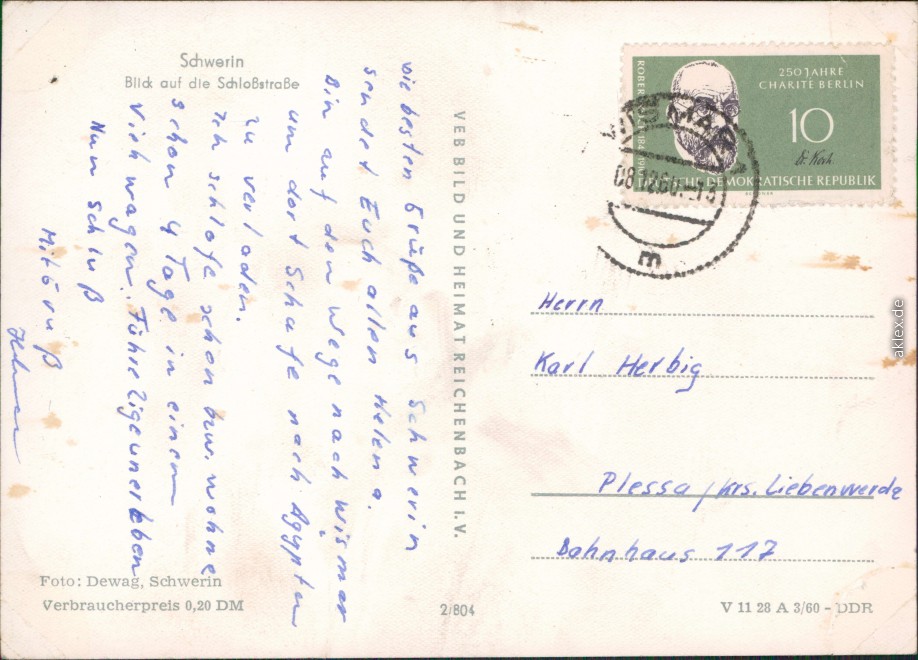 Schwerin
Blick auf die Schloßstraße
Die besten Grüße aus Schwerin
sendet Euch allen
Bin auf dem Wege nach Wismar
um dort Schafe nach Ägypten
zu verladen.
Ich schlafe schon bzw. wohne
schon 4 Tage in einem
Viehwagen. Führe Zigeunerleben
Nun schluß
Mit Gruß
VEB BILD UND HEIMAT REICHENBACH I. V.
250 JAHRE
CHARITÉ BERLIN
10
DEMOKRATISCHE REPUBLIK
Herrn
Karl Herbig
Plessa / Krs. Liebenwerda
Bahnhaus 117
Foto: Dewag, Schwerin
Verbraucherpreis 0,20 DM
2/804
V 11 28 A 3/60 - DDR
aklex.de